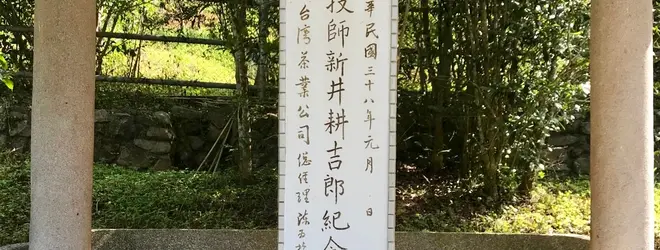 華民國三十八年元月 日
技師新井耕吉郎紀念
台灣茶業公司總經理陳